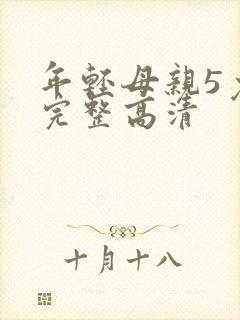 年軽母親5
完整高清
十月十八